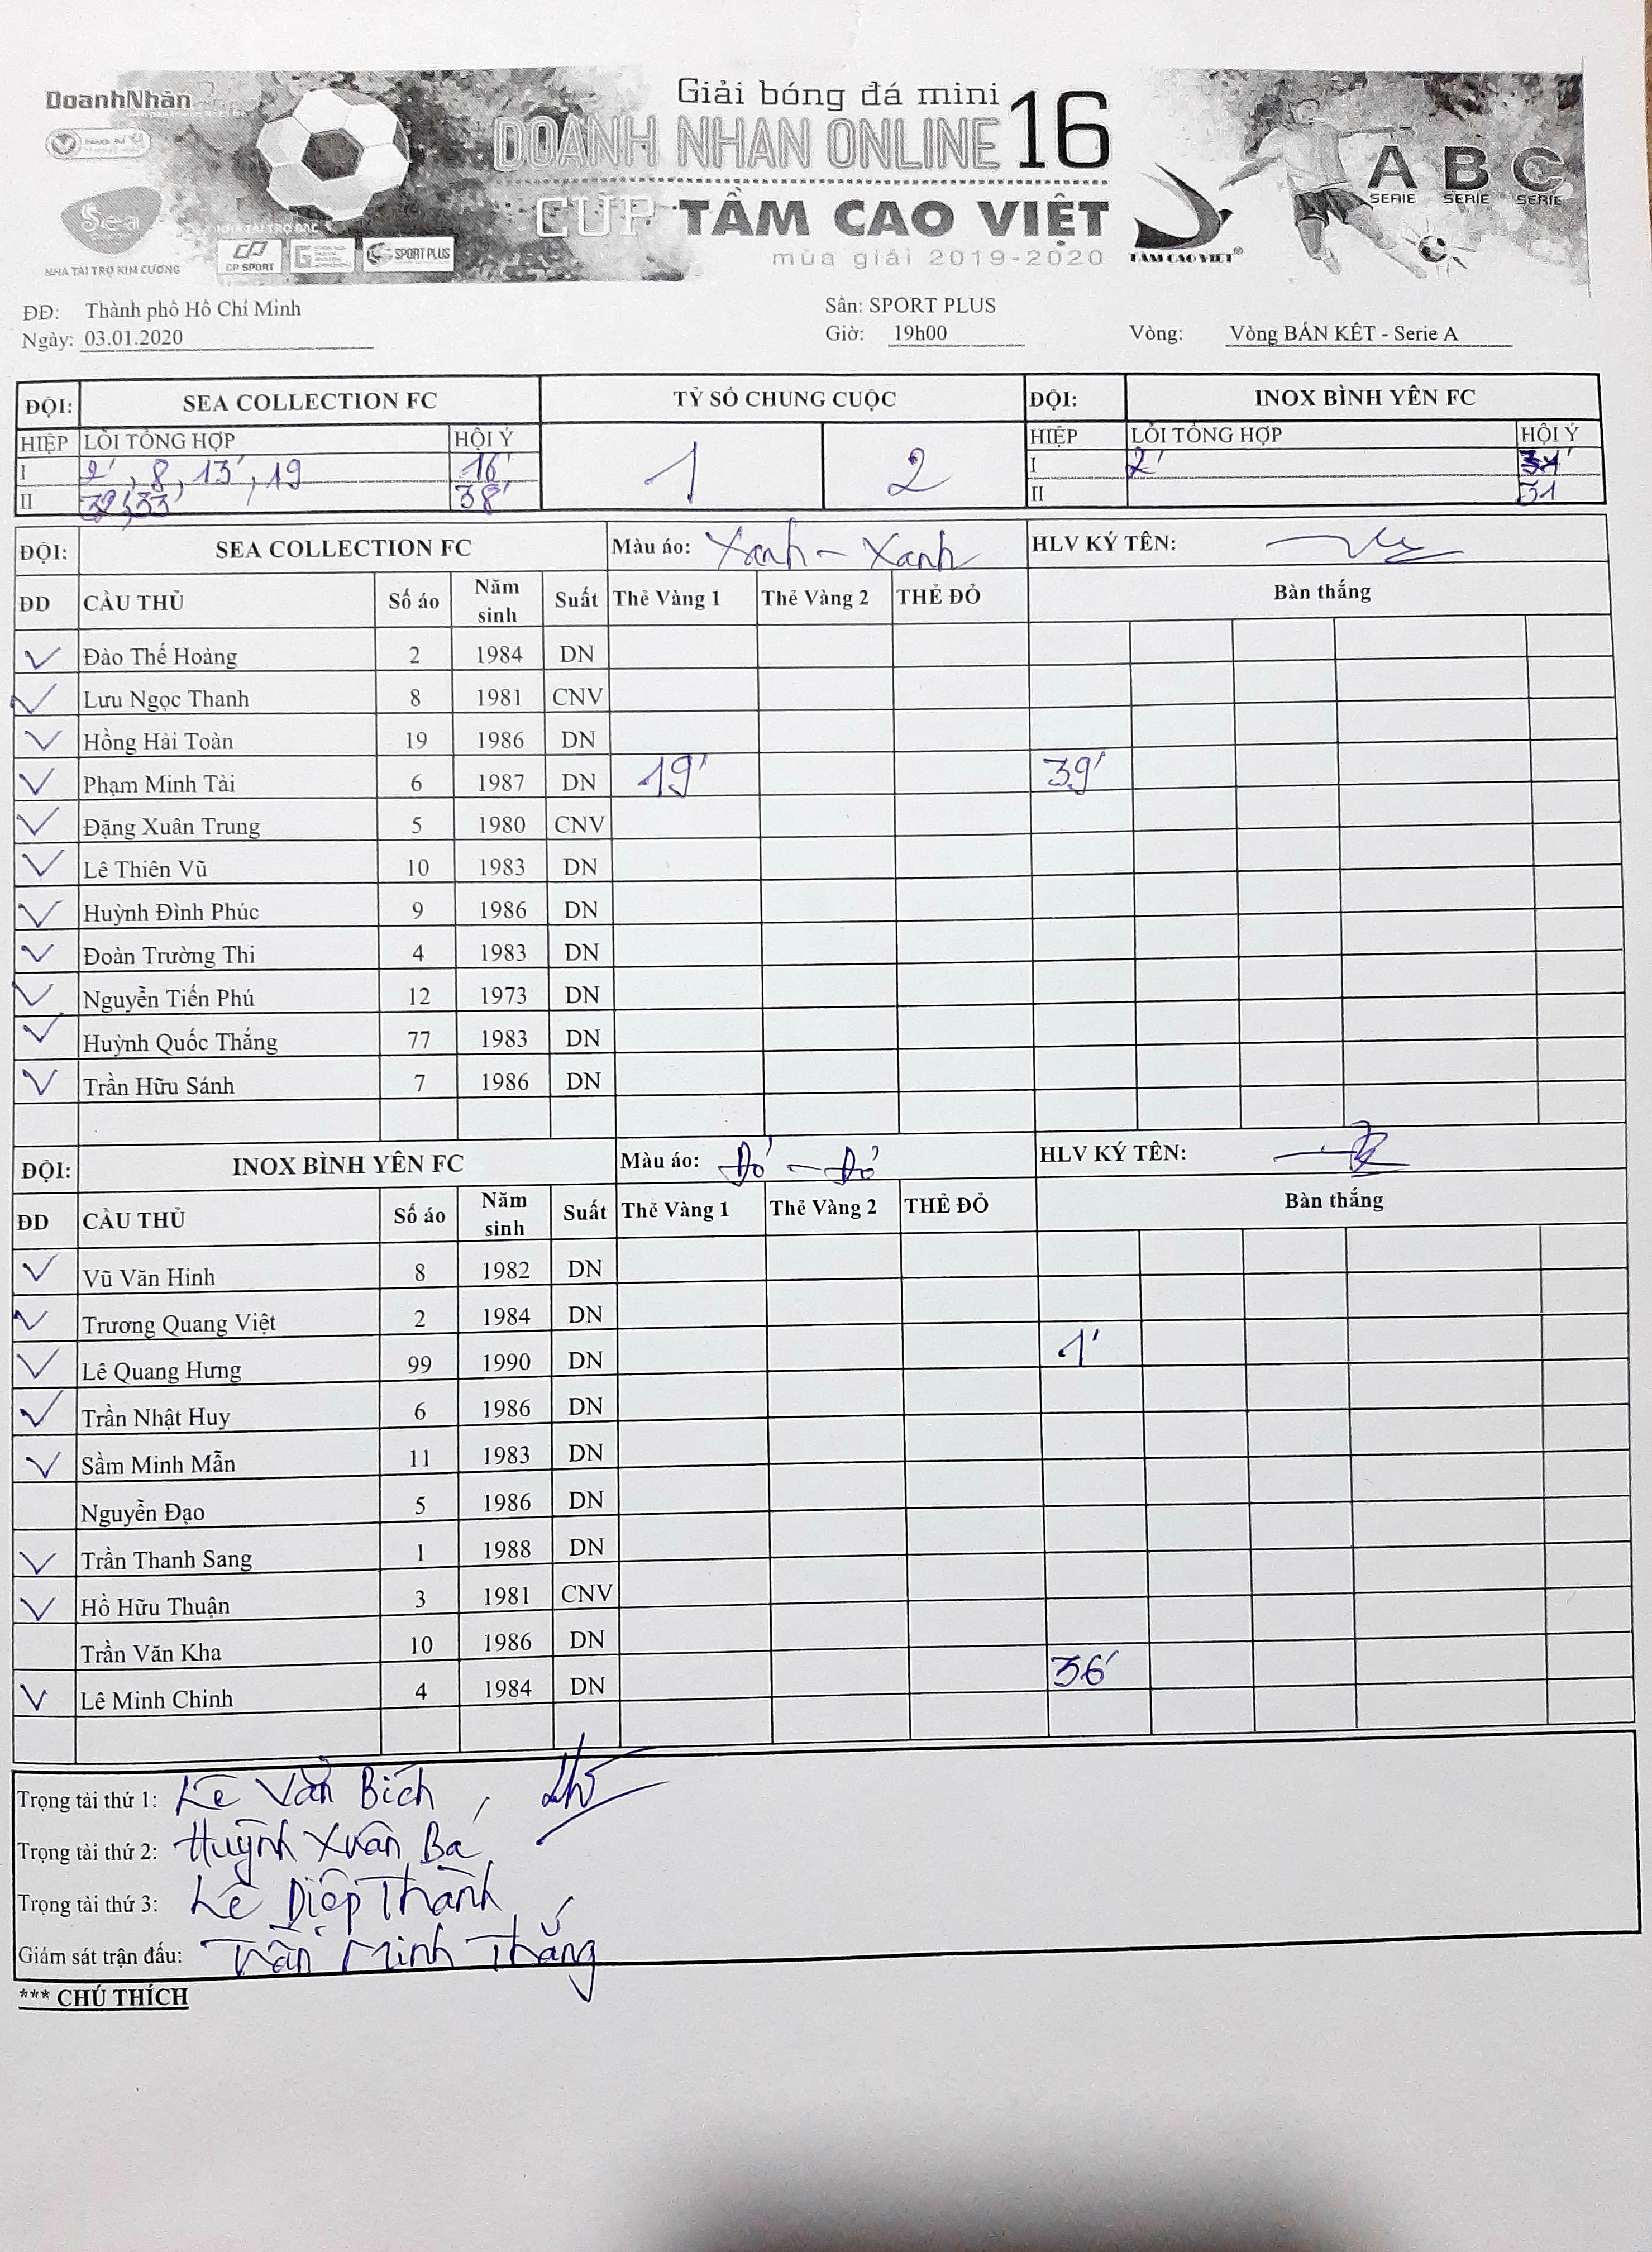 DoanhNhân
Giải bóng đá mini
DOANH NHAN ONLINE 16
CUP TẦM CAO VIỆT
mùa giải 2019-2020
Sea
NHÀ TÀI TRỢ KIM CƯƠNG
NHÀ TÀI TRỢ BẠC
CP SPORT
SPORT PLUS
TẦM CAO VIỆT®
A B C
SERIE SERIE SERIE
ĐĐ: Thành phố Hồ Chí Minh Sân: SPORT PLUS
Ngày: 03.01.2020 Giờ: 19h00 Vòng: Vòng BÁN KẾT - Serie A
ĐỘI: SEA COLLECTION FC TỶ SỐ CHUNG CUỘC ĐỘI: INOX BÌNH YÊN FC
HIỆP LỖI TỔNG HỢP HỘI Ý 1 2 HIỆP LỖI TỔNG HỢP HỘI Ý
I 2', 8, 13', 19 16' I 2'
II 33' 38' II 31
ĐỘI: SEA COLLECTION FC Màu áo: Xanh - Xanh HLV KÝ TÊN:
ĐD CẦU THỦ Số áo Năm sinh Suất Thẻ Vàng 1 Thẻ Vàng 2 THẺ ĐỎ Bàn thắng
Đào Thế Hoàng 2 1984 DN
Lưu Ngọc Thanh 8 1981 CNV
Hồng Hải Toàn 19 1986 DN
Phạm Minh Tài 6 1987 DN 19' 39'
Đặng Xuân Trung 5 1980 CNV
Lê Thiên Vũ 10 1983 DN
Huỳnh Đình Phúc 9 1986 DN
Đoàn Trường Thi 4 1983 DN
Nguyễn Tiến Phú 12 1973 DN
Huỳnh Quốc Thắng 77 1983 DN
Trần Hữu Sánh 7 1986 DN
ĐỘI: INOX BÌNH YÊN FC Màu áo: Đỏ - Đỏ HLV KÝ TÊN:
ĐD CẦU THỦ Số áo Năm sinh Suất Thẻ Vàng 1 Thẻ Vàng 2 THẺ ĐỎ Bàn thắng
Vũ Văn Hinh 8 1982 DN
Trương Quang Việt 2 1984 DN
Lê Quang Hưng 99 1990 DN 1'
Trần Nhật Huy 6 1986 DN
Sầm Minh Mẫn 11 1983 DN
Nguyễn Đạo 5 1986 DN
Trần Thanh Sang 1 1988 DN
Hồ Hữu Thuận 3 1981 CNV
Trần Văn Kha 10 1986 DN
Lê Minh Chinh 4 1984 DN 36'
Trọng tài thứ 1: Lê Văn Bích
Trọng tài thứ 2: Huỳnh Xuân Ba
Trọng tài thứ 3: Lê Diệp Thành
Giám sát trận đấu: Trần Minh Thắng
*** CHÚ THÍCH